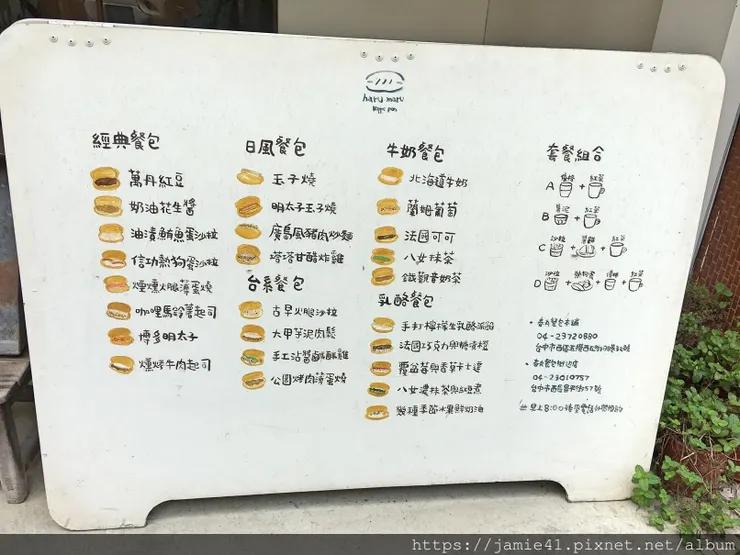 haru maru
經典餐包
萬丹紅豆
奶油花生醬
油漬鮪魚蛋沙拉
信功熱狗蛋沙拉
煙燻火腿薄蛋燒
咖哩馬鈴薯起司
博多明太子
燻烤牛肉起司
日風餐包
玉子燒
明太子玉子燒
廣島風豬肉炒麵
塔塔甘醋炸雞
台系餐包
古早火腿沙拉
大甲芋泥肉鬆
手工沾醬鹹酥雞
公園烤肉薄蛋燒
牛奶餐包
北海道牛奶
蘭姆葡萄
法國可可
八女抹茶
鐵觀音奶茶
乳酪餐包
手打檸檬生乳酪
法國巧克力與
覆盆莓與香草卡士達
八女濃抹茶與紅豆煮
季節水果鮮奶油
套餐組合
A + 紅茶
B + 紅茶
C 沙拉 + + 紅茶
D 沙拉 + + + 紅茶
04-23720880
04-23010757
https://jamie41.pixnet.net/album